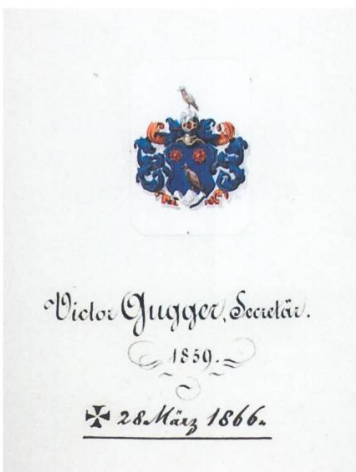 Victor Gugger, Secretär.
1859.
✠ 28 März 1866.